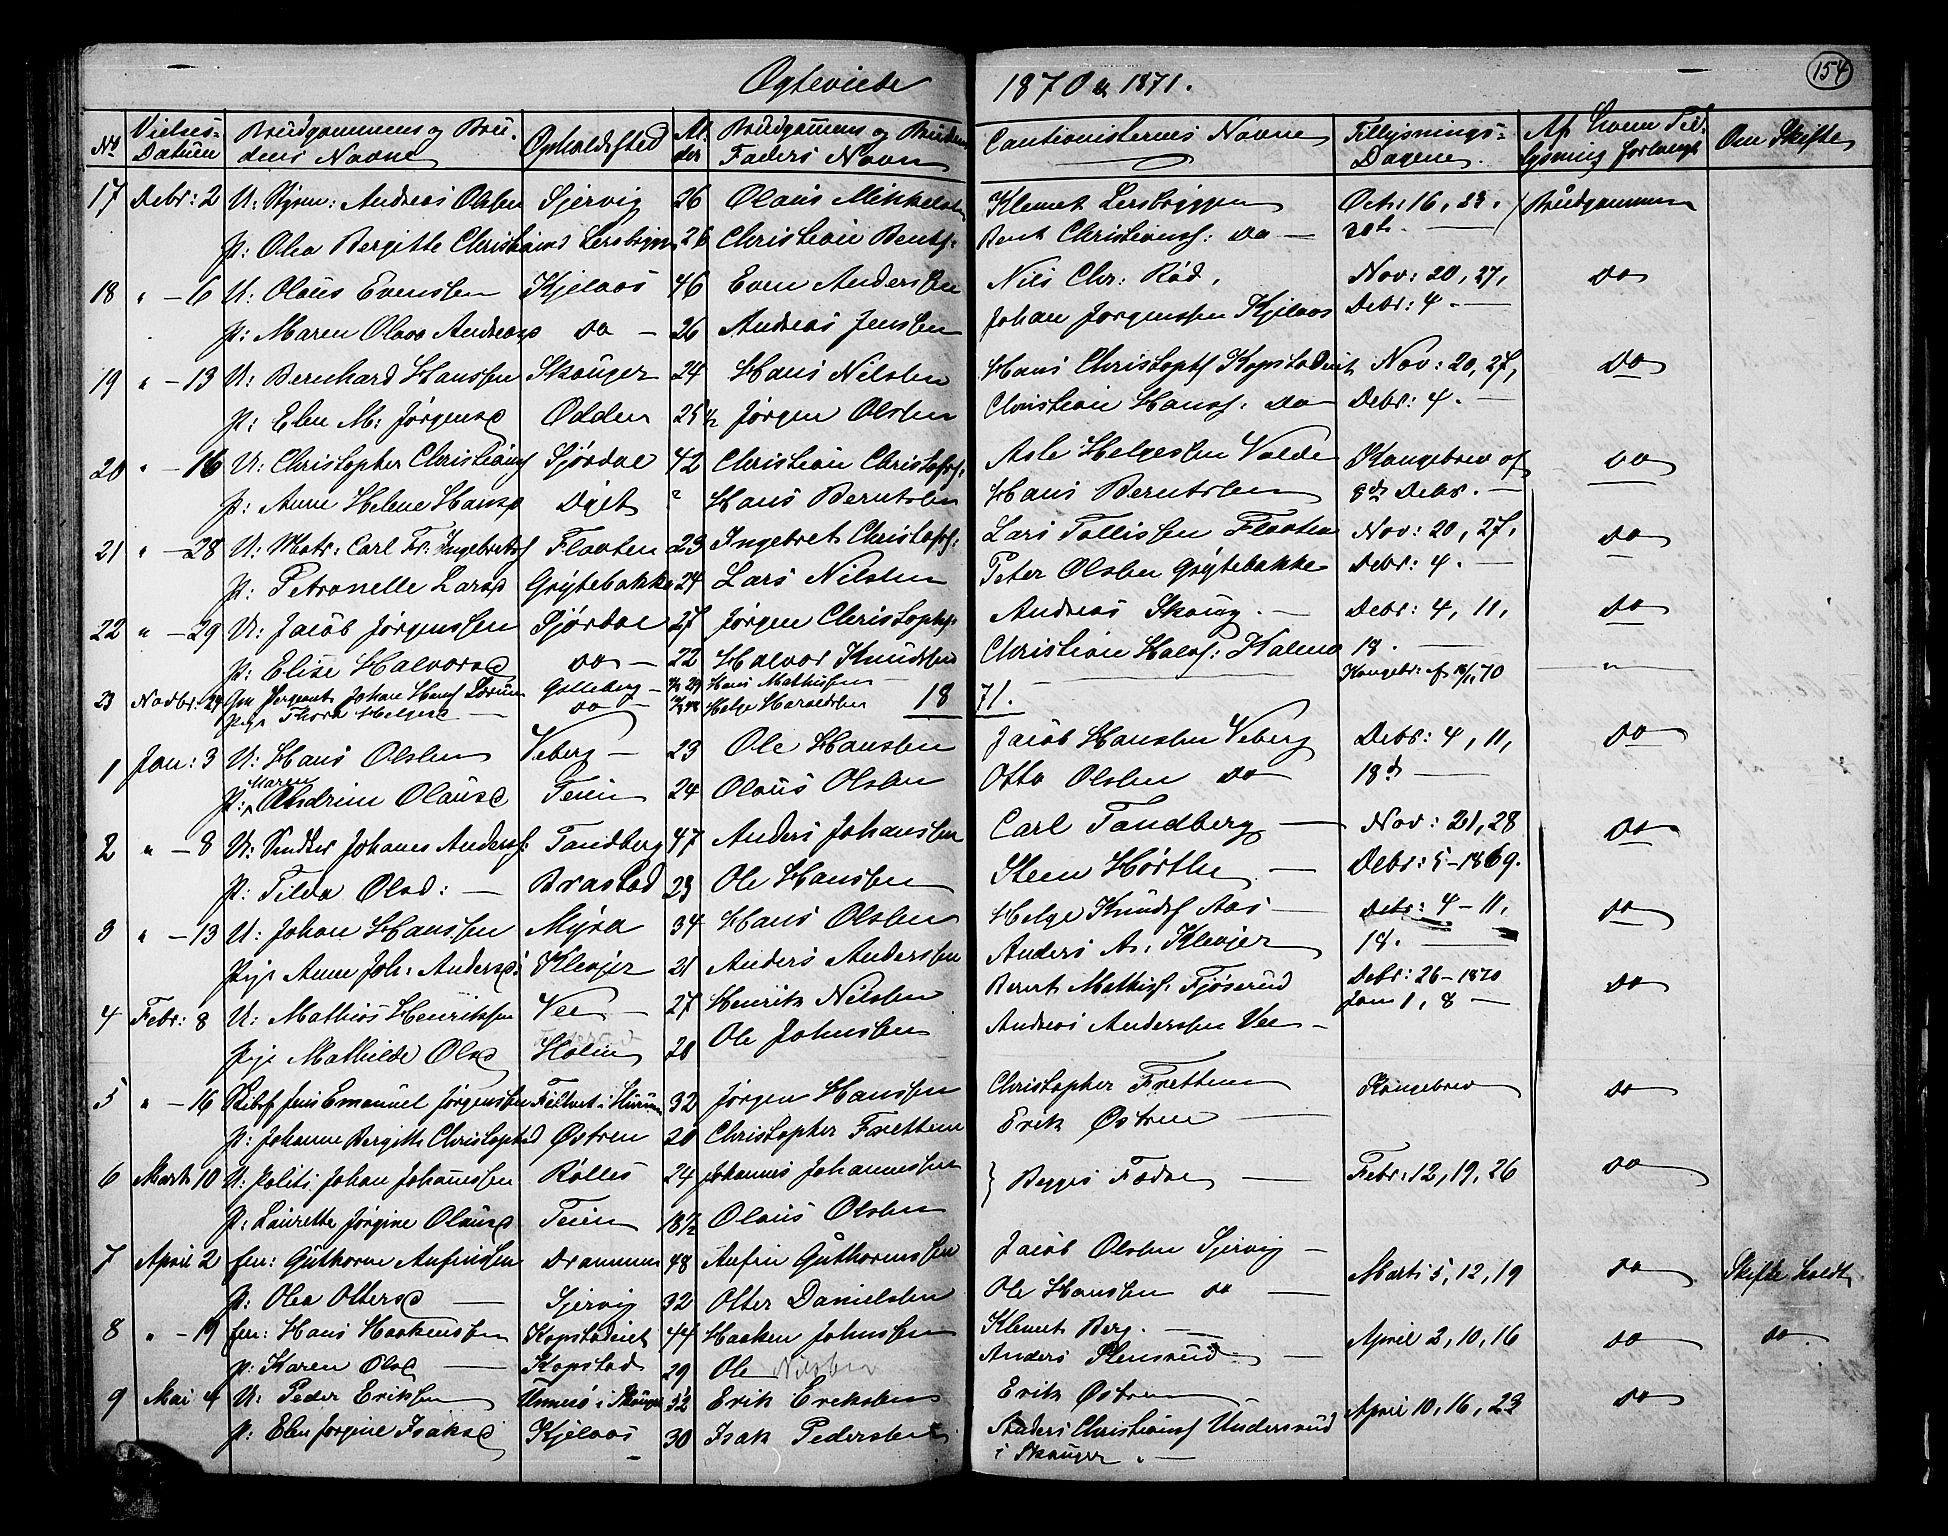 Ægteviede 1870 & 1871. 154
No Vielses- Datum Brudgommens og Bru- dens Navne Opholdssted Al- der Brudgommens og Brudens Faders Navn Cautionisternes Navne Tillysnings- Dagene. Af hvem Til- lysning forlangt Om Skifte
17 Debr: 2 U: Styrm: Andreas Olsen Sjervig 26 Olaus Mikkelsen Klemet Lersbryggen Octr: 16, 23. Brudgommen
p: Olea Bergitte Christians Lersbryn 26 Christian Bents: Bent Christians: do —
18 " — 6 U: Olaus Evenssen Kjelaas 46 Even Anderssen Nils Chr: Rød. Nov: 20, 27, do
p: Maren Olava Andreasd do — 26 Andreas Jenssen Johan Jørgenssen Kjelaas Debr: 4. —
19 " — 13 U: Bernhard Hanssen Skouger 24 Hans Nilssen Hans Christophs Kopstadeiet Nov: 20, 27, do
p: Elen M: Jørgensd Odden 25 1/2 Jørgen Olssen Christian Hanss: do Debr: 4. —
20 " — 16 U: Christopher Christians Fjørdal 42 Christian Christophs: Asle Helgessen Valde Kongebrev af do
p: Anne Helene Hansd Døjet " Hans Berntssen Hans Berntssen 8de Debr. —
21 " — 28 U: Matr: Carl Fr: Ingebrets Flaaten 23 Ingebret Christophs: Lars Tollissen Flaaten Nov: 20, 27, do
p: Petronelle Larsd Grytebakke 24 Lars Nilssen Peter Olssen Grytebakke Debr: 4. —
22 " — 29 U: Jacob Jørgenssen Fjørdal 27 Jørgen Christophs: Andreas Skoug. — Debr: 4, 11, do
p: Elise Halvorsd do — 22 Halvor Knudssen Christian Halvs: Holmen 18. —
23 Novbr: 24 Sergeant Johan Hans Lørum Golleberg — 29 Hans Mathissen — Kongebr: af 18/11 70 "
pige Thora Helgesd — do — Helge Haraldssen
1871.
1 Jan: 3 U: Hans Olssen Veberg — 23 Ole Hanssen Jacob Hanssen Veberg Debr: 4, 11, do
p: Maren Andrine Olausd Teien 24 Olaus Olssen Otto Olssen do 18d —
2 " — 8 U: Snedker Johanes Anders: Tandberg 47 Anders Johanssen Carl Tandberg — Nov: 21, 28 do
p: Tilda Olsd: — Brastad 23 Ole Hanssen Steen Hørthe — Debr: 5 - 1869.
3 " — 13 U: Johan Hanssen Myra 34 Hans Olssen Helge Knuds Aas — Debr: 4 - 11, do
Pige Anne Joh: Andersd: Klevjer 21 Anders Anderssen Anders A: Klevjer 18. —
4 Febr: 8 U: Mathias Henrikssen Vee — 27 Henrik Nilssen Bernt Mathis: Fjøserud Debr: 26 - 1870 do
Pige Mathilde Olsd Holm 20 Ole Johnssen Andreas Anderssen Vee — Jan 1, 8 —
5 " — 16 Skibsf Jens Emanuel Jørgenssen Filtvet i Hurum 32 Jørgen Hanssen Christopher Fretteim Kongebrev do
p: Johanne Bergitte Christophsd Østren 20 Christopher Frettem Erik Østren —
6 Marts 10 U: Politi. Johan Johanssen Rølles 24 Johannes Johannessen } Begges Fædre — Febr: 12, 19, 26 do
p: Laurette Jørgine Olausd Teien 18 1/2 Olaus Olssen
7 April 2 Em: Guthorm Anfinssen Drammen 48 Anfin Guthormssen Jacob Olssen Sjervig — Marts 5, 12, 19 do Skifte holdt
p: Olea Ottersd — Sjervig 32 Otter Danielssen Ole Hanssen do —
8 " — 19 Em: Hans Haakenssen Kopstadeiet 44 Haaken Johnssen Klemet Berg. — April 2, 10, 16 do do
p: Karen Olsd — Kopstad 29 Ole Nilssen Anders Stensrud —
9 Mai 4 U: Peder Erikssen Unnesø i Skouger 32 Erik Erikssen Erik Østren — April 10, 16, 23 do
p: Elen Jørgine Isaksd Kjelaas 30 Isak Pederssen Anders Christians Undersrud
i Skouger. —